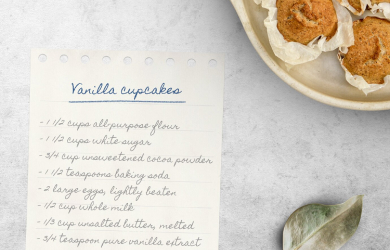 Vanilla cupcakes
- 1 1/2 cups all-purpose flour
- 1 1/2 cups white sugar
- 3/4 cup unsweetened cocoa powder
- 1 1/2 teaspoons baking soda
- 2 large eggs, lightly beaten
- 1/2 cup whole milk
- 1/3 cup unsalted butter, melted
- 3/4 teaspoon pure vanilla extract